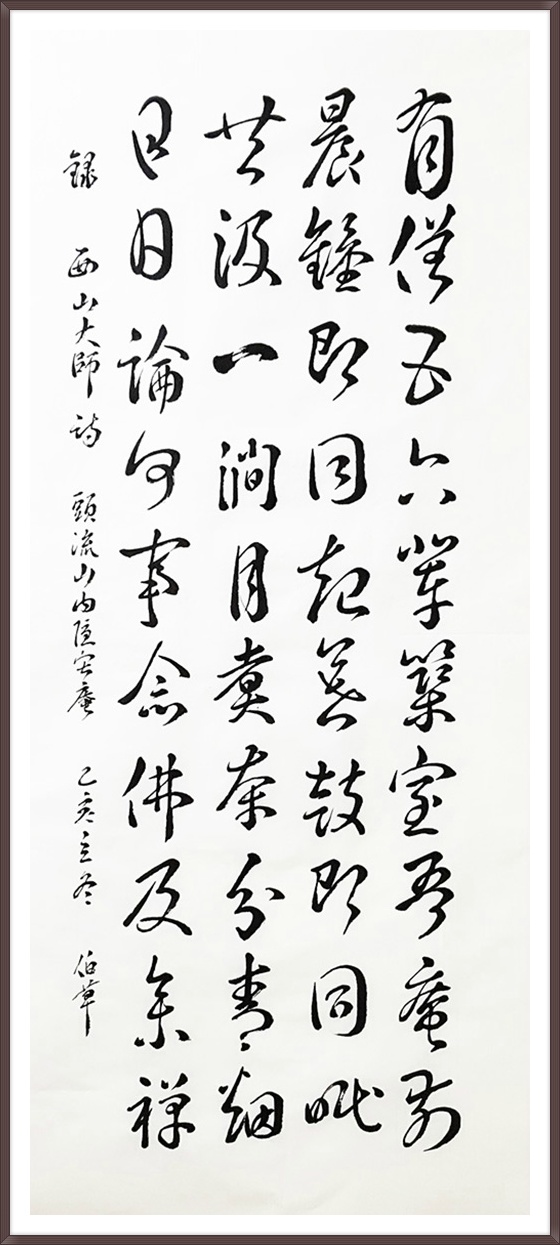 有僧五六輩築室吾庵前
晨鐘即同起暮鼓即同眠
共汲一澗月煮茶分青烟
日日論何事念佛及參禪
錄 西山大師 詩 頭流山內隱寂庵 己亥立冬 伯